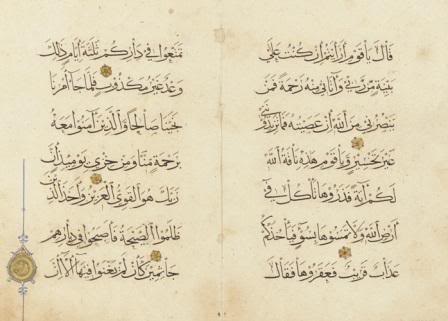 قال يا قوم أرأيتم إن كنت على
بينة من ربي وآتاني منه رحمة فمن
ينصرني من الله إن عصيته فما تزيدونني
غير تخسير ويا قوم هذه ناقة الله
لكم آية فذروها تأكل في
أرض الله ولا تمسوها بسوء فيأخذكم
عذاب قريب فعقروها فقال
تمتعوا في داركم ثلثة أيام ذلك
وعد غير مكذوب فلما جاء أمرنا
نجينا صالحا والذين آمنوا معه
برحمة منا ومن خزي يومئذ إن
ربك هو القوي العزيز وأخذ الذين
ظلموا الصيحة فأصبحوا في دارهم
جاثمين كأن لم يغنوا فيها ألا إن